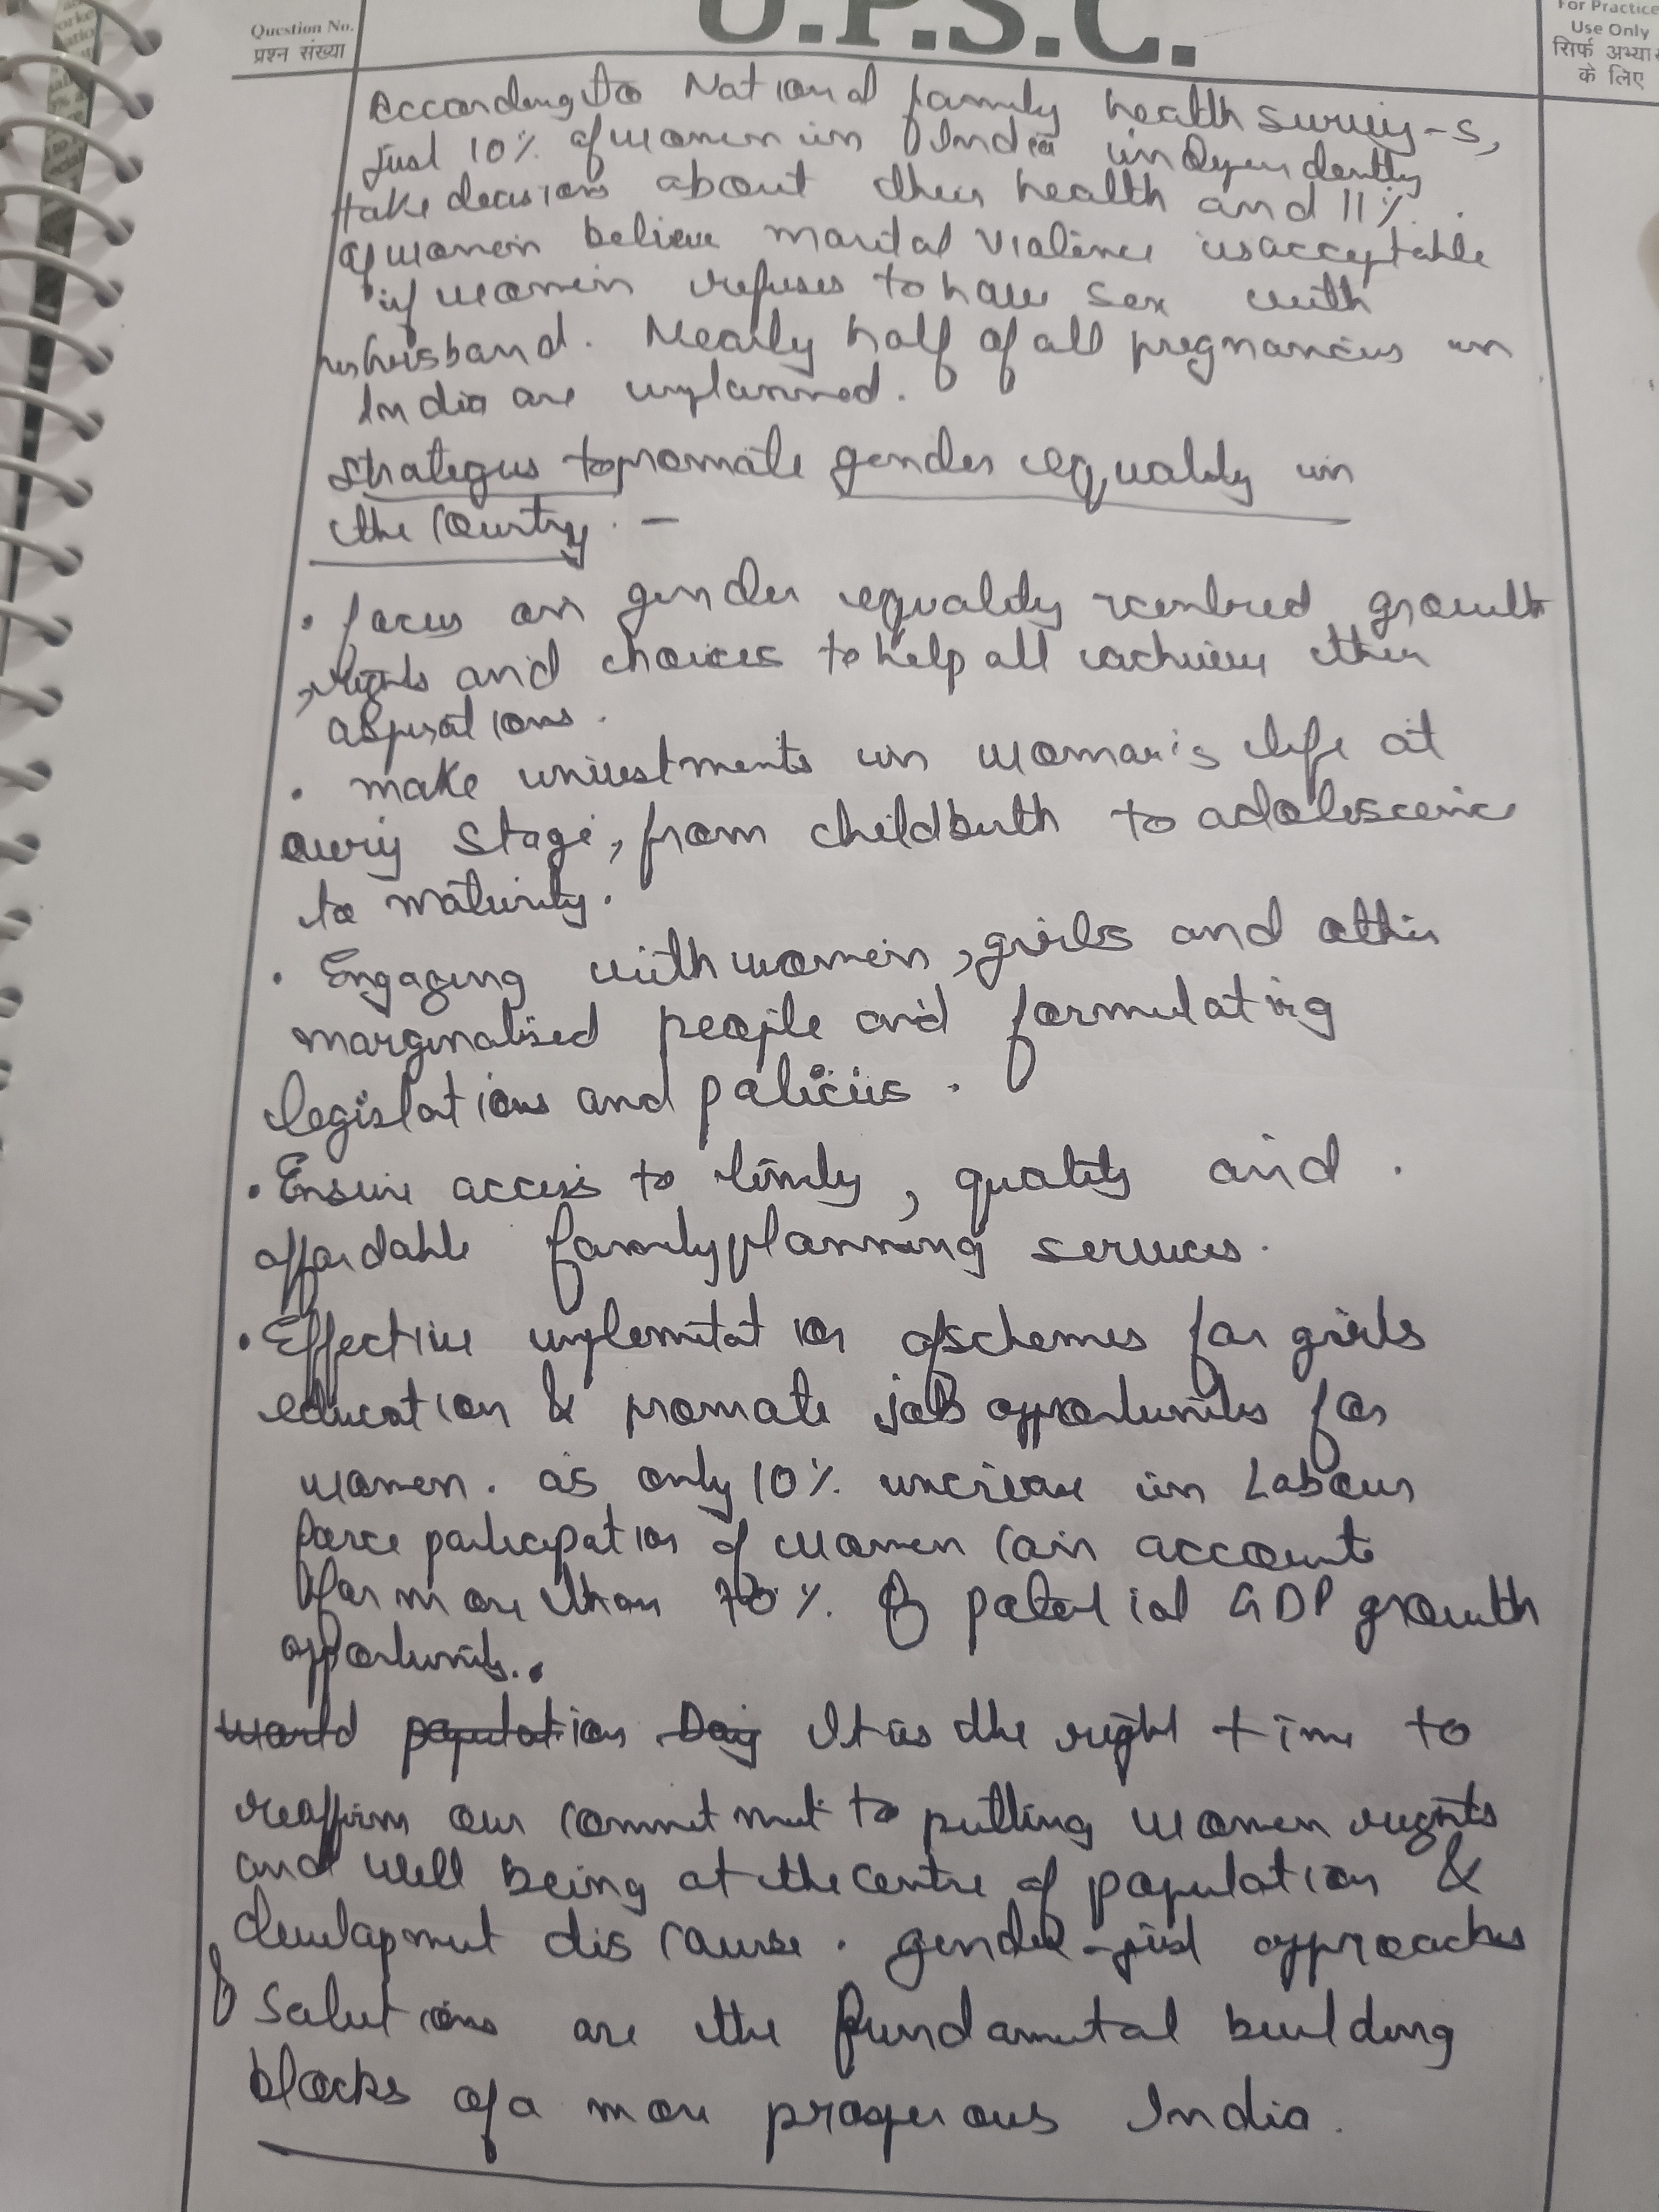 Question No.
प्रश्न संख्या
U.P.S.C.
For Practice
Use Only
सिर्फ अभ्या
के लिए
According to National family health survey-5,
just 10% of women in India independently
take decisions about their health and 11%
of women believe marital violence is acceptable
if women refuses to have sex with
her husband. Nearly half of all pregnancies in
India are unplanned.
Strategies to promote gender equality in
the country. -
• focus on gender equality centred growth
, rights and choices to help all achieve their
aspirations.
• make investments in woman's life at
every stage, from childbirth to adolescence
to maturity.
• Engaging with women, girls and other
marginalised people and formulating
legislations and policies.
• Ensure access to timely, quality and
affordable family planning services.
• Effective implemtation of schemes for girls
education & promote job opportunities for
women. as only 10% increase in Labour
force participation of women can account
for more than 70% of potential GDP growth
opportunity..
world population Day It is the right time to
reaffirm our commitment to putting women rights
and well being at the centre of population &
development discourse. gender-just approaches
& Solutions are the fundamental building
blocks of a more prosperous India.